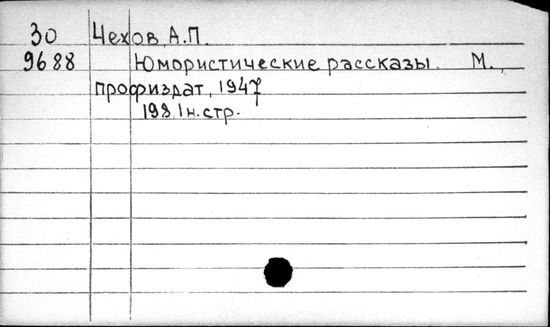 30 Чехов, А.П.
9688 Юмористические рассказы. М.,
профиздат, 1947
198, 1н. стр.